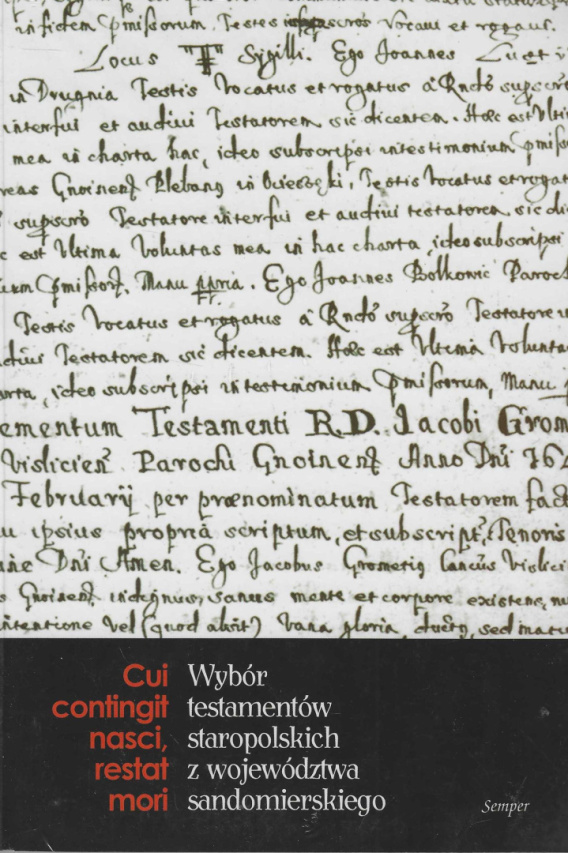 in fidem pmissorum. Testes vocavi et rogavi.
Locus Sigilli. Ego Joannes
in Drugnia Testis Vocatus et rogatus à Rndo suprscro
interfui et audivi Testatorem sic dicentem. Haec est Ulti
mea in charta hac, ideo subscripsi in testimonium pmiss
reas Gnoinens Plebanus in Testis Vocatus et rogat
suprscro Testatore interfui et audivi testatorem sic di
c est Ultima Voluntas mea in hac charta, ideo subscripsi
ium pmissor. Manu ppria. Ego Joannes Bolkowic Paroch
Testis Vocatus et rogatus à Rndo suprscro Testatore
divi Testatorem sic dicentem. Haec est Ultima Volunta
arta, ideo subscripsi in testimonium pmissorum, Manu
ementum Testamenti R.D. Jacobi Grom
Vislicien Parochi Gnoinens Anno Dni 162
Februarij per praenominatum Testatorem fact
u ipsius propria scriptum, et subscript, Tenoris
ine Dni Amen. Ego Jacobus Grometius Vislici
s Gnoinens indignus, sanus mente et corpore existens,
intentione vel (quod absit) vana gloria, sed
Cui
contingit
nasci,
restat
mori
Wybór
testamentów
staropolskich
z województwa
sandomierskiego
Semper